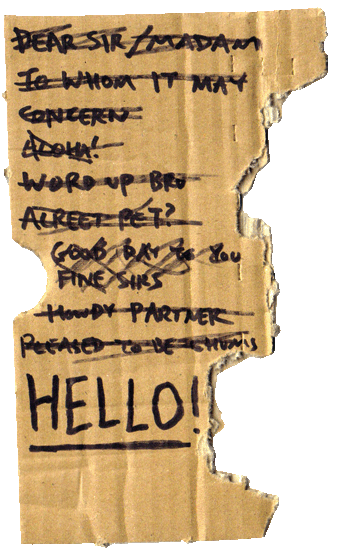 DEAR SIR/MADAM
TO WHOM IT MAY
CONCERN
ALOHA!
WORD UP BRO
ALREET PET?
GOOD DAY TO YOU
FINE SIRS
HOWDY PARTNER
PLEASED TO BE CHUMS
HELLO!